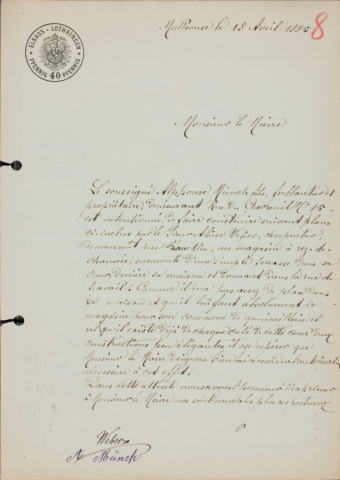 ELSASS-LOTHRINGEN
PFENNIG 40 PFENNIG
Mulhouse le 18 Avril 1885
8
Monsieur le Maire
Le soussigné Alphonse Münch fils, ferblantier et
propriétaire, demeurant Rue du N° 15,
est intentionné de faire construire suivant plans
ci inclus par le Sieur Weber, charpentier,
demeurant rue un magasin à rez-de-
chaussée, surmonté d'une terrasse dans sa
cour, derrière sa maison et donnant dans la rue du
travail; Comme il n'a pas assez de place dans
sa maison et qu'il lui faut absolument ce
magasin pour son commerce de quincaillerie et
vu qu'il existe déjà de chaque côté de cette cour deux
constructions peu élégantes il ose espérer que
Monsieur le Maire daignera bien lui accorder l'autorisation
nécessaire à cet effet.
Dans cette attente nous avons l'honneur d'exprimer
à Monsieur le Maire nos salutations les plus respectueuses
Weber
A Münch